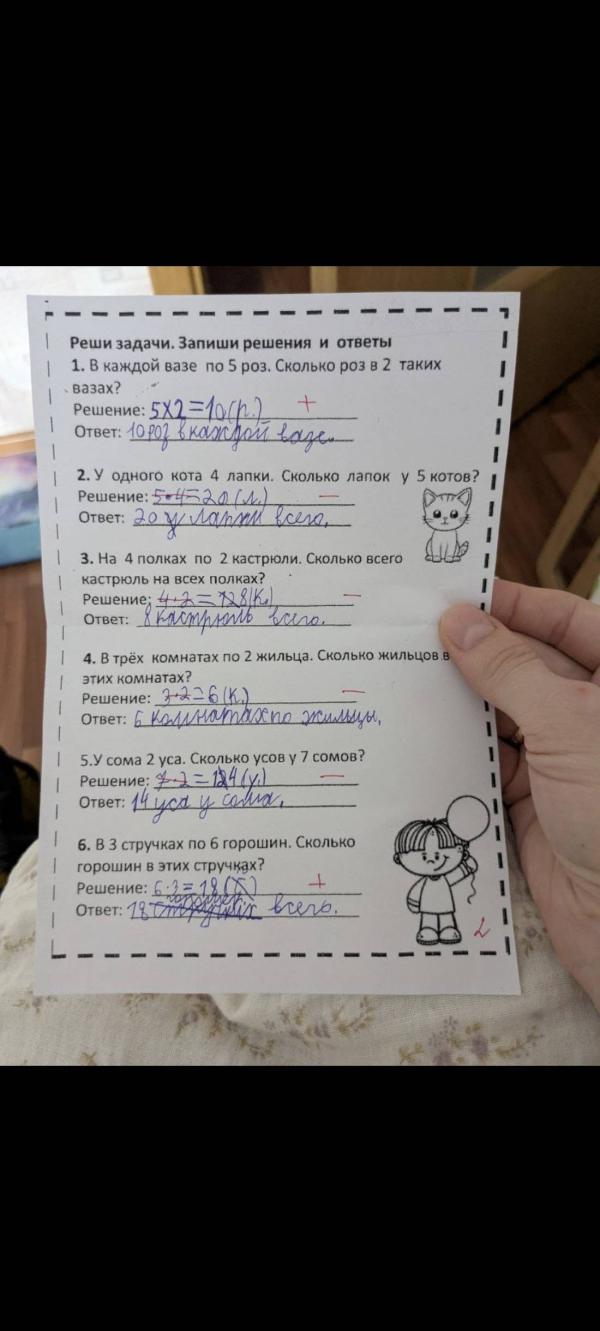 Реши задачи. Запиши решения и ответы
1. В каждой вазе по 5 роз. Сколько роз в 2 таких
вазах?
Решение: 5х2=10(р.) +
Ответ: 10 роз в каждой вазе.
2. У одного кота 4 лапки. Сколько лапок у 5 котов?
Решение: 5·4=20(л.) –
Ответ: 20 у лапки всего.
3. На 4 полках по 2 кастрюли. Сколько всего
кастрюль на всех полках?
Решение: 4·2=8(к.) –
Ответ: 8 кастрюль всего.
4. В трёх комнатах по 2 жильца. Сколько жильцов в
этих комнатах?
Решение: 3·2=6(к.) –
Ответ: 6 комнатах по жильцы.
5.У сома 2 уса. Сколько усов у 7 сомов?
Решение: 7·2=14(у.) –
Ответ: 14 уса у сома.
6. В 3 стручках по 6 горошин. Сколько
горошин в этих стручках?
Решение: 6·3=18( ) +
Ответ: 18 всего.
2